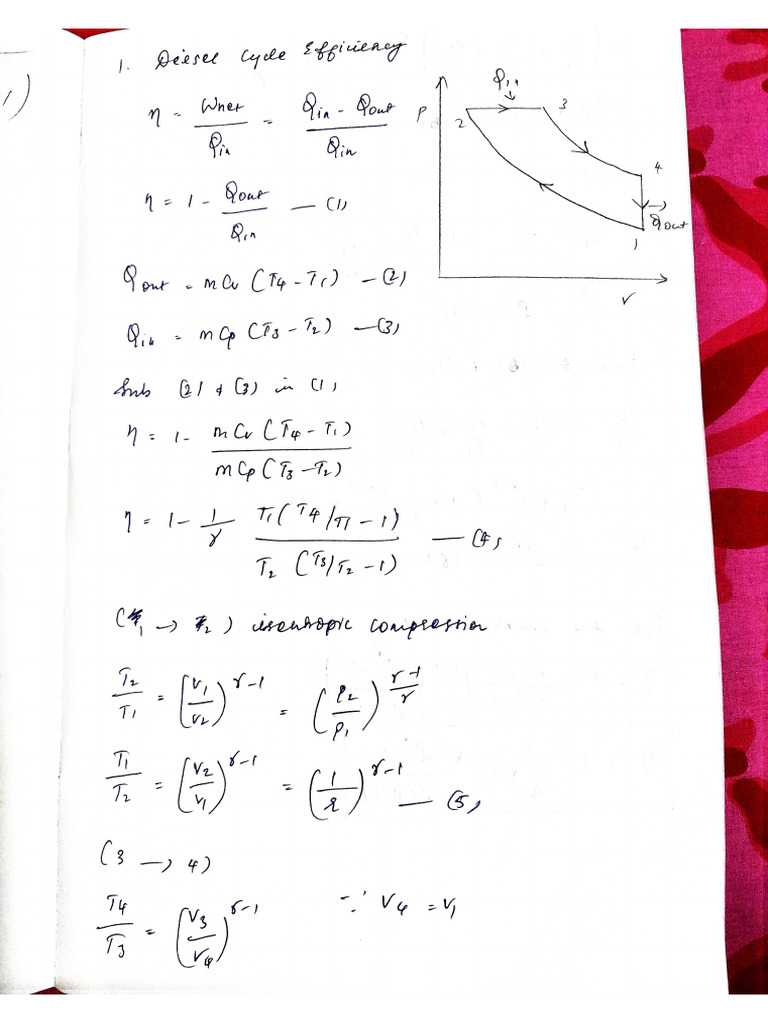 1. Diesel Cycle Efficiency
η = Wnet / Qin = Qin - Qout / Qin
η = 1 - Qout / Qin — (1)
Qout = mCv (T4 - T1) — (2)
Qin = mCp (T3 - T2) — (3)
P
Qin
2
3
4
Qout
1
V
Sub (2) & (3) in (1)
η = 1 - mCv (T4 - T1) / mCp (T3 - T2)
η = 1 - 1/γ T1 (T4/T1 - 1) / T2 (T3/T2 - 1) — (4)
(1 → 2) isentropic compression
T2/T1 = (V1/V2)^γ-1 = (P2/P1)^γ-1/γ
T1/T2 = (V2/V1)^γ-1 = (1/r)^γ-1 — (5)
(3 → 4)
T4/T3 = (V3/V4)^γ-1 ∵ V4 = V1